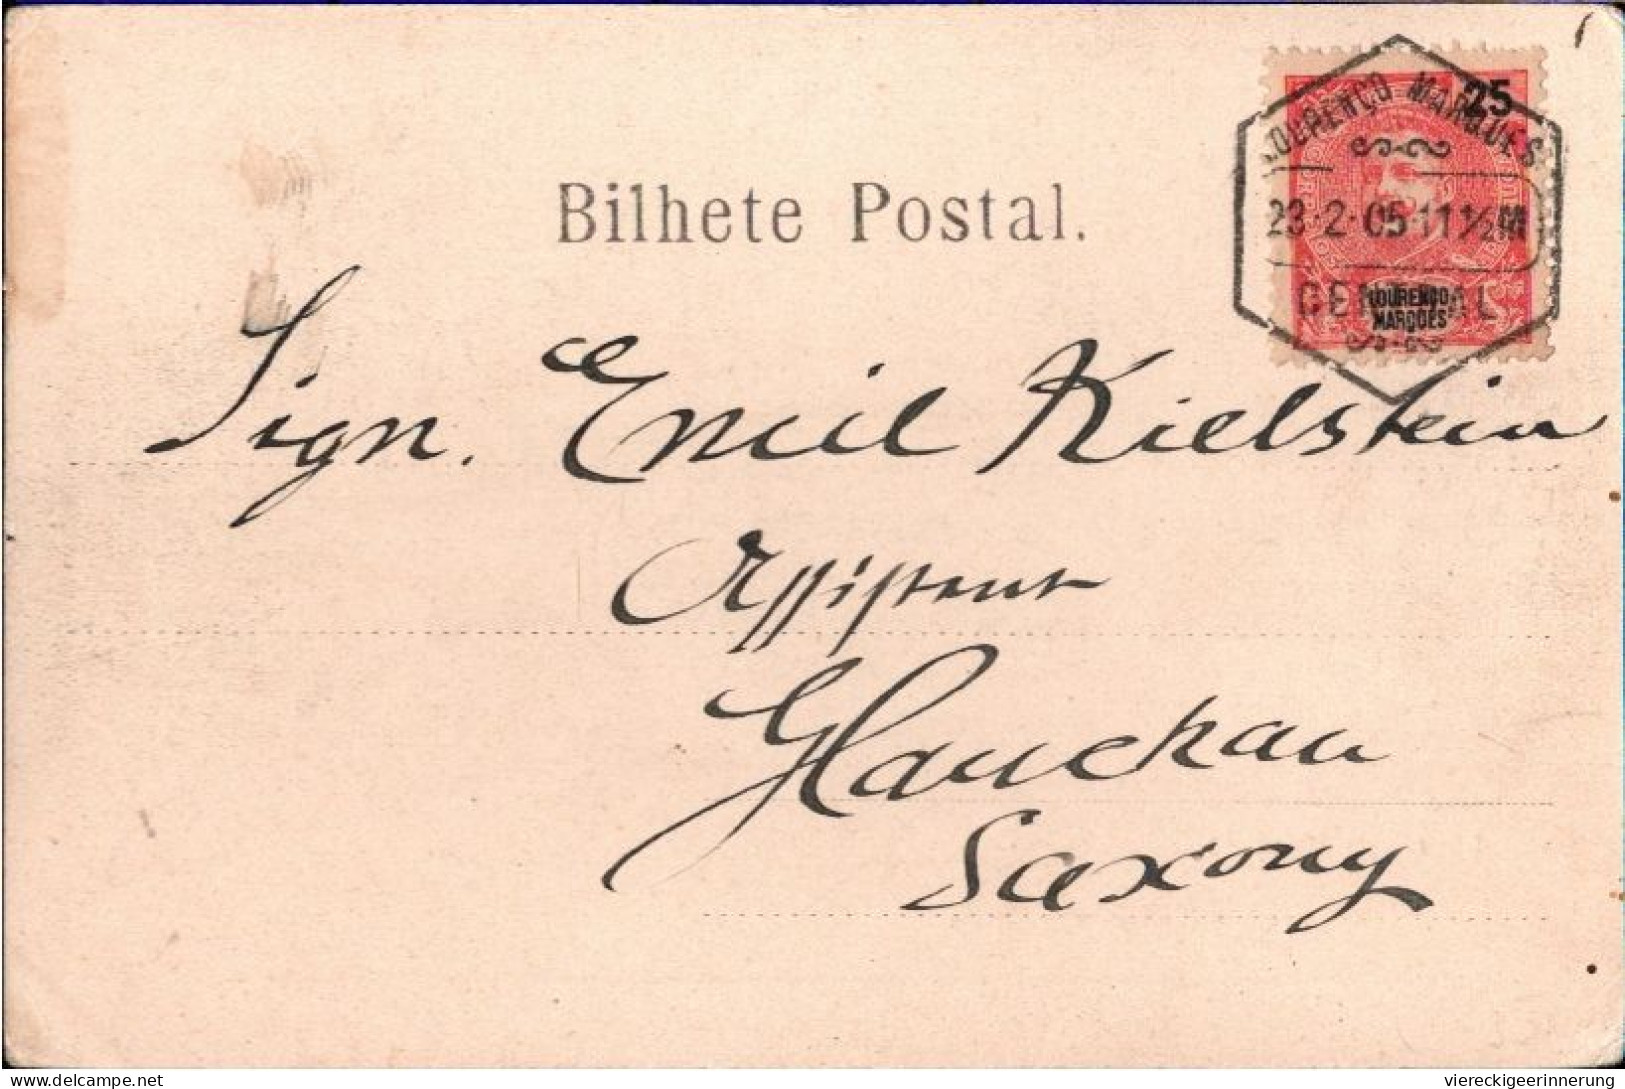 25
LOURENÇO MARQUES
23·2·05·11½M
CENTRAL
LOURENÇO
MARQUES
Bilhete Postal.
Sign. Emil Kielstein
Assistent
Glauchau
Saxony
viereckigeerinnerung